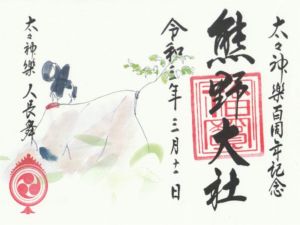 太々神楽百周年記念
熊野大社
令和三年三月十一日
太々神楽 人長舞